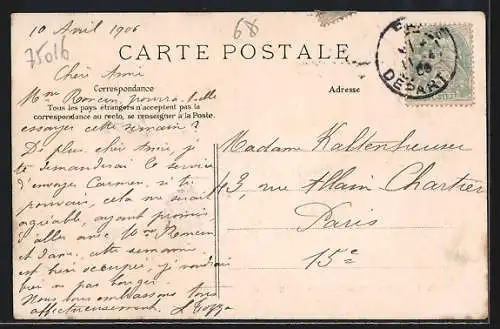 10 Avril 1906
68
75016
CARTE POSTALE
Chère Amie
Correspondance
Tous les pays étrangers n'acceptent pas la
correspondance au recto, se renseigner à la Poste.
Adresse
DEPART
Mme Roncin, pourra-t-elle
essayer cette semaine ?
De plus, chère Amie, je
te demanderai le service
d'envoyer Carmen, si tu
pouvais, cela me serait
agréable, ayant promis
d'aller avec Mme Roncin
et dame, cette semaine
est bien occupée, je voudrais
ne pas bouger.
Nous vous embrassons tous
affectueusement.
Madame Kaltenheuser
43, rue Alain Chartier
Paris
15e